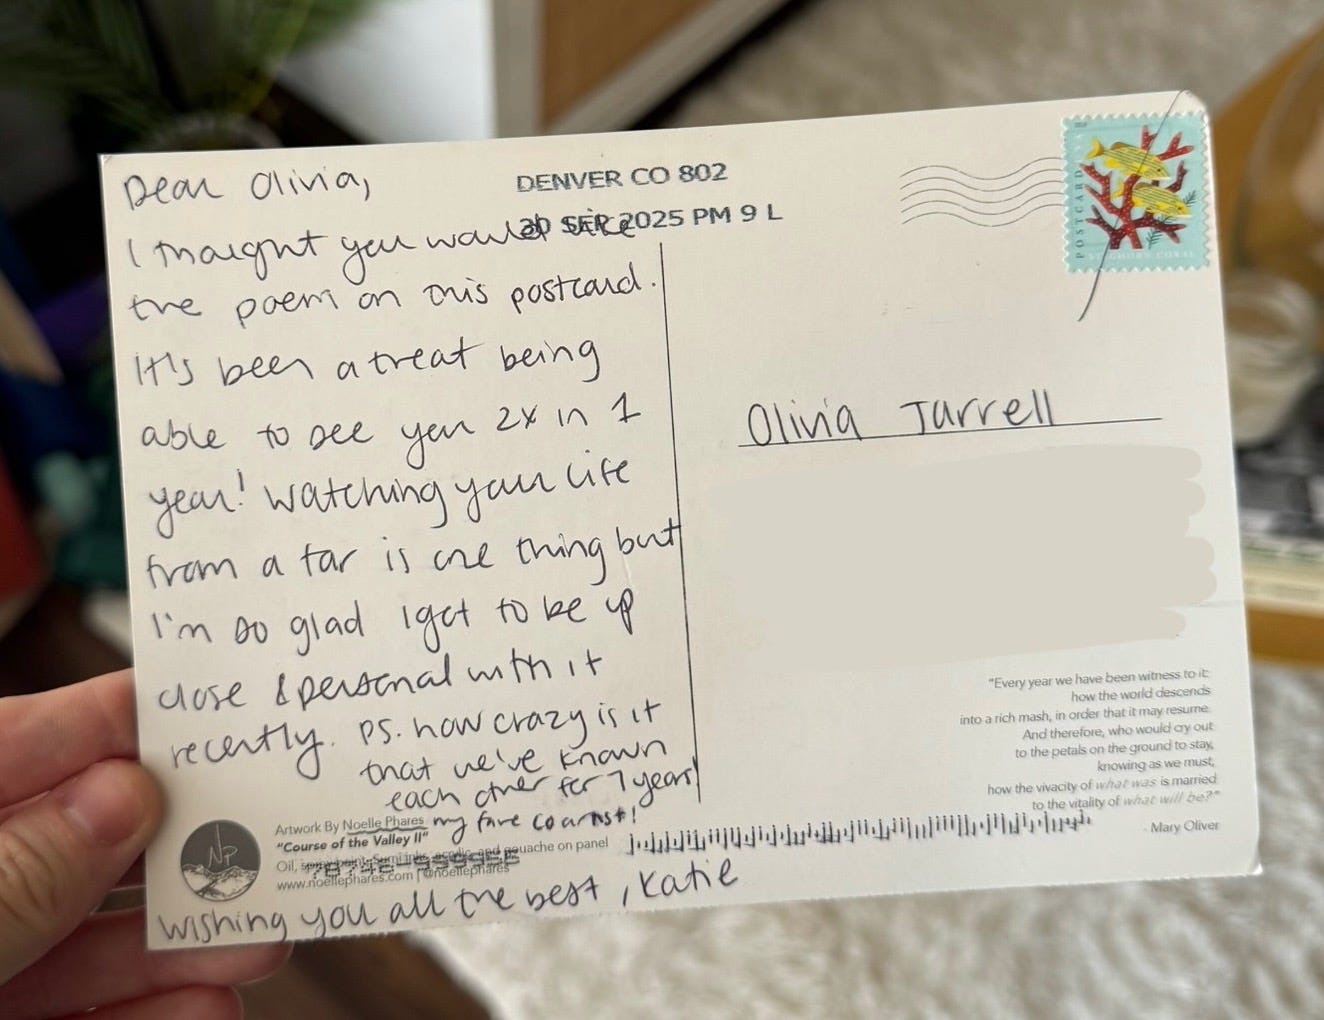 Dear Olivia,
I thought you would like
the poem on this postcard.
It's been a treat being
able to see you 2x in 1
year! Watching your life
from a far is one thing but
I'm so glad I got to be up
close & personal with it
recently. PS. how crazy is it
that we've known
each other for 7 years!
Artwork By Noelle Phares my fave CO artist!
"Course of the Valley II"
Oil, spray paint, Sumi ink, acrylic, and gouache on panel
www.noellephares.com | @noellephares
Wishing you all the best, Katie
NP
DENVER CO 802
30 SEP 2025 PM 9 L
POSTCARD
Olivia Jarrell
"Every year we have been witness to it:
how the world descends
into a rich mash, in order that it may resume.
And therefore, who would cry out
to the petals on the ground to stay,
knowing as we must,
how the vivacity of what was is married
to the vitality of what will be?"
- Mary Oliver